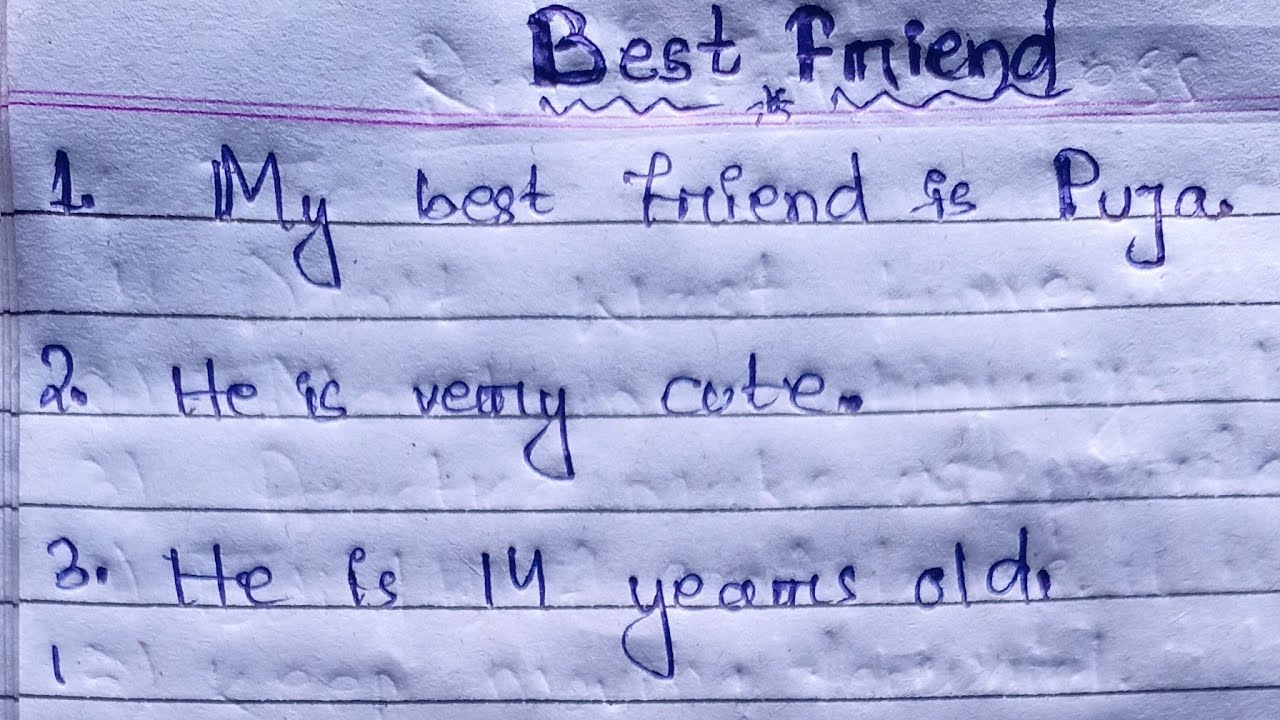 Best Friend
1. My best friend is Puja.
2. He is very cute.
3. He is 14 years old.